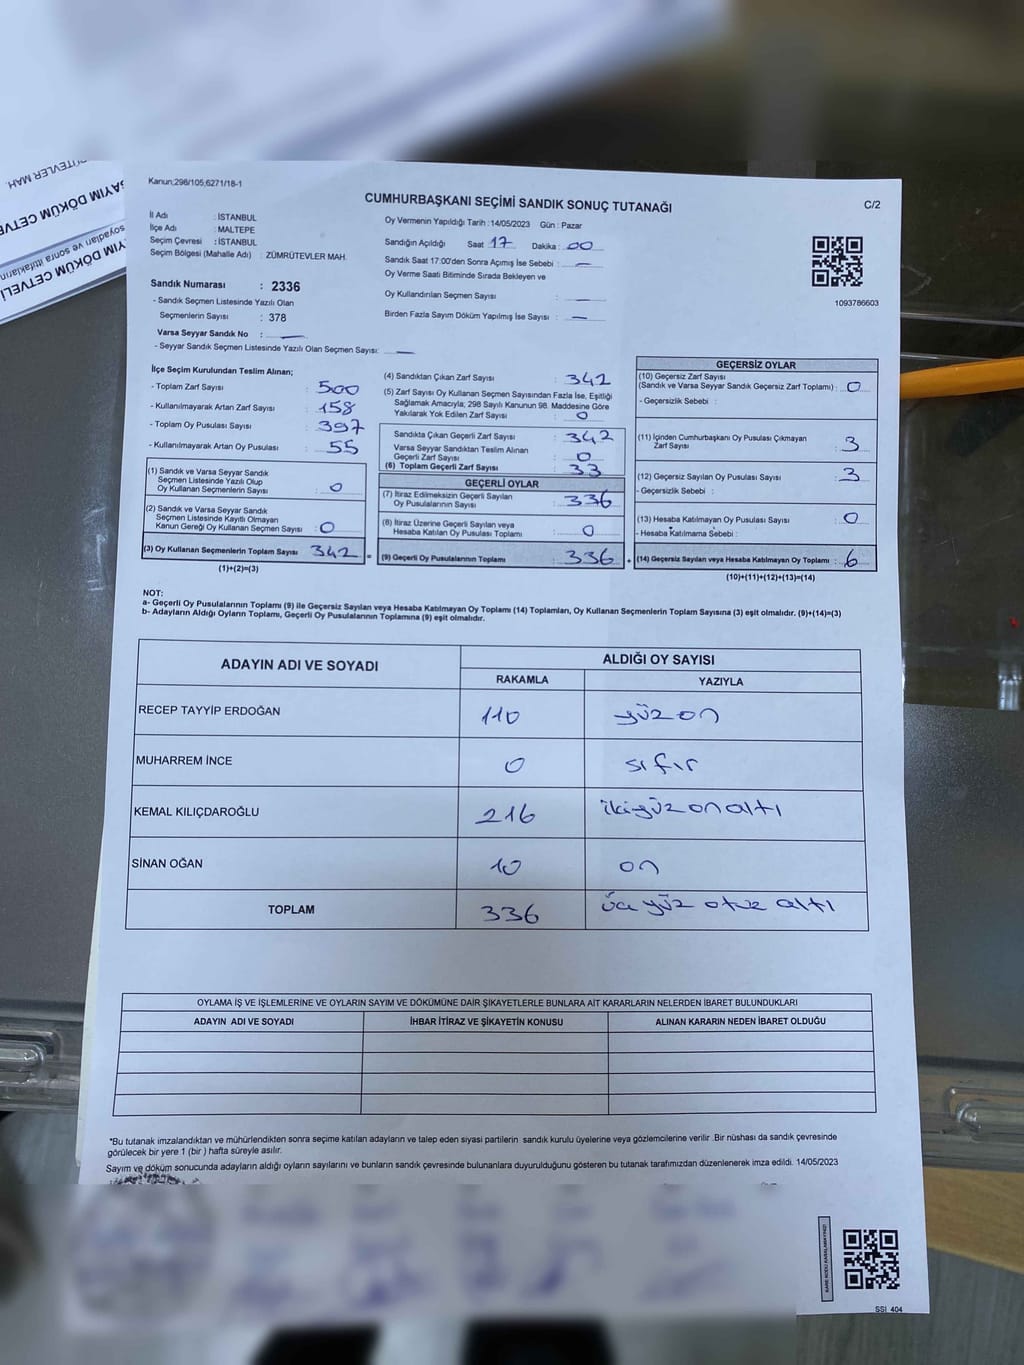 HÜTEVLER MAH.
SAYIM DÖKÜM CETVE
soyadları ve sonra ittifakların
YIM DÖKÜM CETVELİ
Kanun;298/105;6271/18-1
CUMHURBAŞKANI SEÇİMİ SANDIK SONUÇ TUTANAĞI
C/2
İl Adı : İSTANBUL
İlçe Adı : MALTEPE
Seçim Çevresi : İSTANBUL
Seçim Bölgesi (Mahalle Adı) : ZÜMRÜTEVLER MAH.
Oy Vermenin Yapıldığı Tarih :14/05/2023 Gün : Pazar
Sandığın Açıldığı Saat 17 Dakika : 00
Sandık Saat 17:00'den Sonra Açımış İse Sebebi : —
Oy Verme Saati Bitiminde Sırada Bekleyen ve
Oy Kullandırılan Seçmen Sayısı : —
Birden Fazla Sayım Döküm Yapılmış İse Sayısı : —
1093786603
Sandık Numarası : 2336
- Sandık Seçmen Listesinde Yazılı Olan
Seçmenlerin Sayısı : 378
Varsa Seyyar Sandık No : —
- Seyyar Sandık Seçmen Listesinde Yazılı Olan Seçmen Sayısı: —
İlçe Seçim Kurulundan Teslim Alınan;
- Toplam Zarf Sayısı : 500
- Kullanılmayarak Artan Zarf Sayısı : 158
- Toplam Oy Pusulası Sayısı : 397
- Kullanılmayarak Artan Oy Pusulası : 55
(1) Sandık ve Varsa Seyyar Sandık
Seçmen Listesinde Yazılı Olup
Oy Kullanan Seçmenlerin Sayısı : 0
(2) Sandık ve Varsa Seyyar Sandık
Seçmen Listesinde Kayıtlı Olmayan
Kanun Gereği Oy Kullanan Seçmen Sayısı : 0
(3) Oy Kullanan Seçmenlerin Toplam Sayısı 342 =
(1)+(2)=(3)
(4) Sandıktan Çıkan Zarf Sayısı : 342
(5) Zarf Sayısı Oy Kullanan Seçmen Sayısından Fazla İse, Eşitliği
Sağlamak Amacıyla; 298 Sayılı Kanunun 98. Maddesine Göre
Yakılarak Yok Edilen Zarf Sayısı : 0
Sandıkta Çıkan Geçerli Zarf Sayısı : 342
Varsa Seyyar Sandıktan Teslim Alınan
Geçerli Zarf Sayısı : 0
(6) Toplam Geçerli Zarf Sayısı : 33
GEÇERLİ OYLAR
(7) İtiraz Edilmeksizin Geçerli Sayılan
Oy Pusulalarının Sayısı : 336
(8) İtiraz Üzerine Geçerli Sayılan veya
Hesaba Katılan Oy Pusulaları Toplamı : 0
(9) Geçerli Oy Pusulalarının Toplamı : 336 +
GEÇERSİZ OYLAR
(10) Geçersiz Zarf Sayısı
(Sandık ve Varsa Seyyar Sandık Geçersiz Zarf Toplamı) : 0
- Geçersizlik Sebebi :
(11) İçinden Cumhurbaşkanı Oy Pusulası Çıkmayan
Zarf Sayısı : 3
(12) Geçersiz Sayılan Oy Pusulası Sayısı : 3
- Geçersizlik Sebebi :
(13) Hesaba Katılmayan Oy Pusulası Sayısı : 0
- Hesaba Katılmama Sebebi :
(14) Geçersiz Sayılan veya Hesaba Katılmayan Oy Toplamı : 6
(10)+(11)+(12)+(13)=(14)
NOT:
a- Geçerli Oy Pusulalarının Toplamı (9) ile Geçersiz Sayılan veya Hesaba Katılmayan Oy Toplamı (14) Toplamları, Oy Kullanan Seçmenlerin Toplam Sayısına (3) eşit olmalıdır. (9)+(14)=(3)
b- Adayların Aldığı Oyların Toplamı, Geçerli Oy Pusulalarının Toplamına (9) eşit olmalıdır.
ADAYIN ADI VE SOYADI ALDIĞI OY SAYISI
RAKAMLA YAZIYLA
RECEP TAYYİP ERDOĞAN 110 yüz on
MUHARREM İNCE 0 sıfır
KEMAL KILIÇDAROĞLU 216 ikiyüz on altı
SİNAN OĞAN 10 on
TOPLAM 336 üç yüz otuz altı
OYLAMA İŞ VE İŞLEMLERİNE VE OYLARIN SAYIM VE DÖKÜMÜNE DAİR ŞİKAYETLERLE BUNLARA AİT KARARLARIN NELERDEN İBARET BULUNDUKLARI
ADAYIN ADI VE SOYADI İHBAR İTİRAZ VE ŞİKAYETİN KONUSU ALINAN KARARIN NEDEN İBARET OLDUĞU
*Bu tutanak imzalandıktan ve mühürlendikten sonra seçime katılan adayların ve talep eden siyasi partilerin sandık kurulu üyelerine veya gözlemcilerine verilir .Bir nüshası da sandık çevresinde
görülecek bir yere 1 (bir ) hafta süreyle asılır.
Sayım ve döküm sonucunda adayların aldığı oyların sayılarını ve bunların sandık çevresinde bulunanlara duyurulduğunu gösteren bu tutanak tarafımızdan düzenlenerek imza edildi. 14/05/2023
KARE KODU KARALAMAYINIZ!
SSI_404